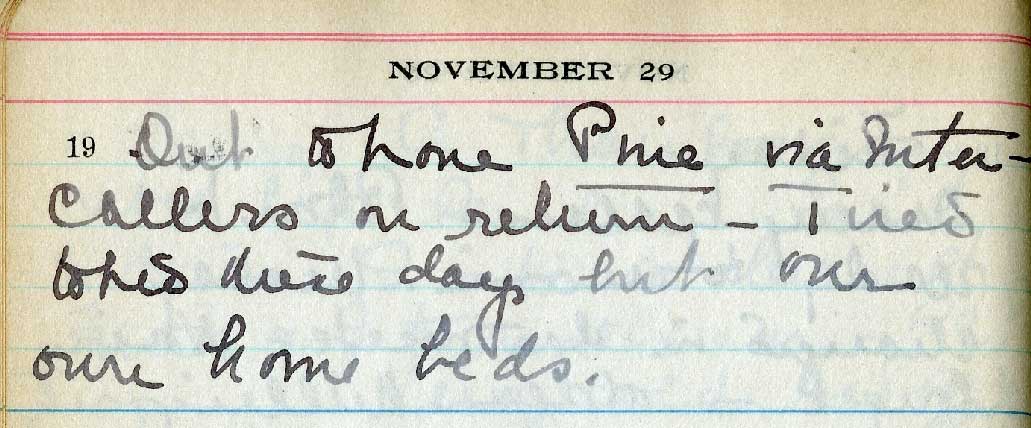 NOVEMBER 29
19 Out to Lone Pine via Inter-
Callers on return – Tired
to bed these days but our
own home beds.